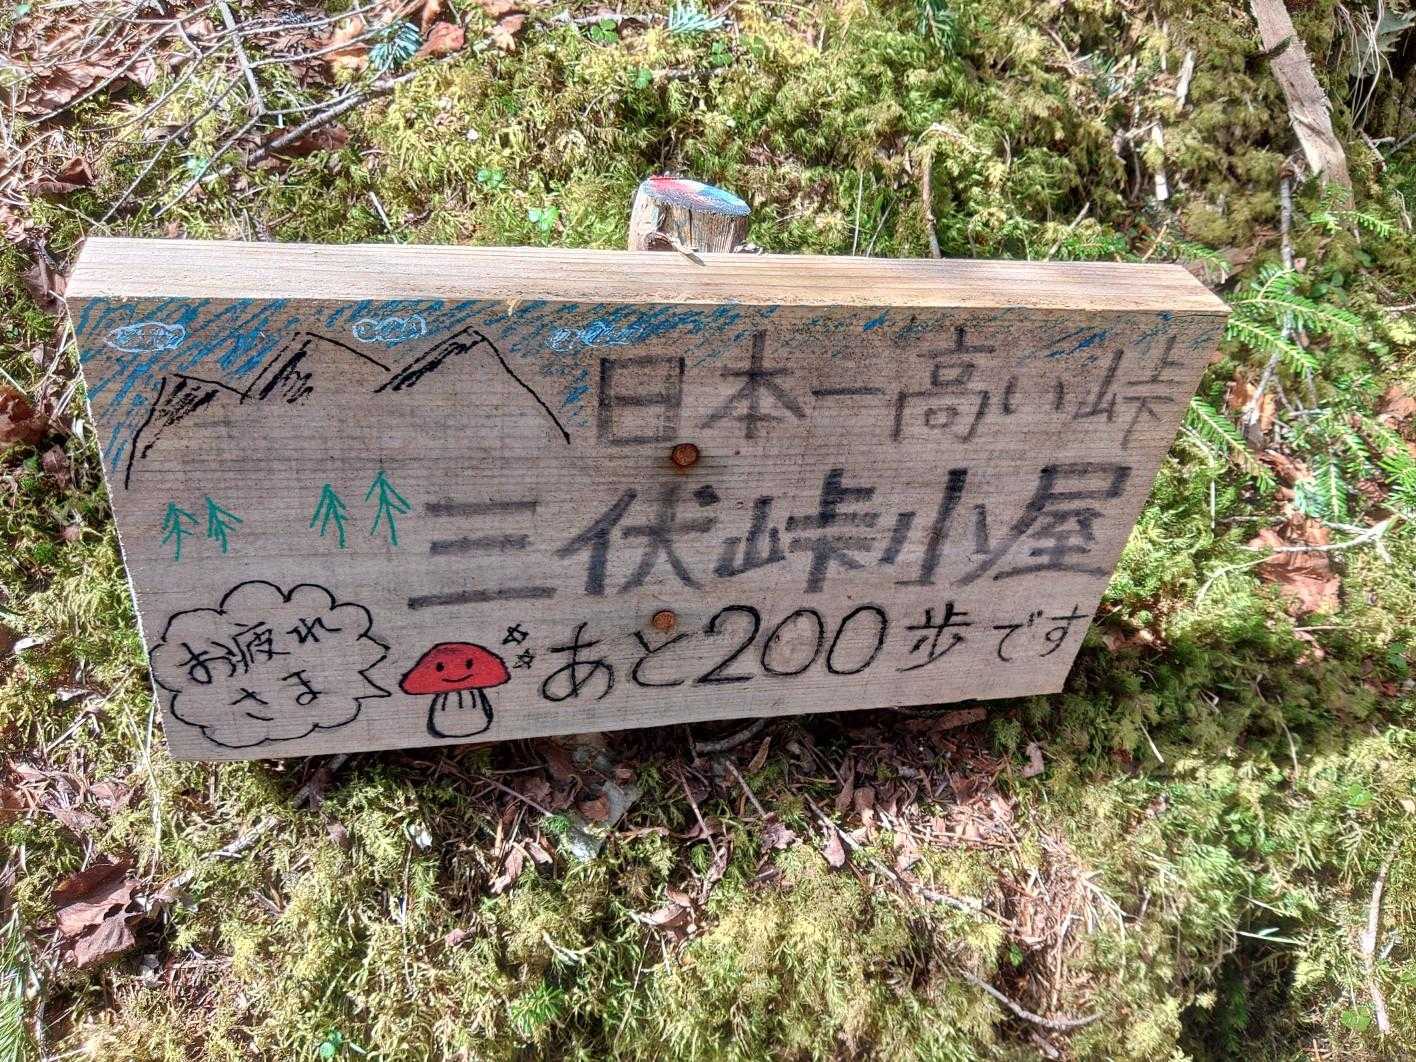 日本一高い峠
三伏峠小屋
あと200歩です
お疲れ
さま